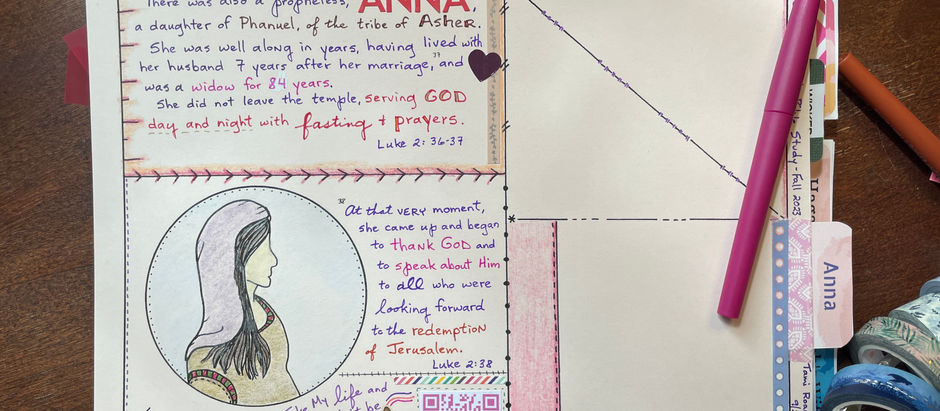 There was also a prophetess, ANNA,
a daughter of Phanuel, of the tribe of Asher.
She was well along in years, having lived with
her husband 7 years after her marriage, 37 and
was a widow for 84 years.
She did not leave the temple, serving GOD
day and night with fasting + prayers.
Luke 2: 36-37
38 At that VERY moment,
she came up and began
to thank GOD and
to speak about Him
to all who were
looking forward
to the redemption
of Jerusalem.
Luke 2:38
My life and
be
Study - Fall 2023
Anna
Tami